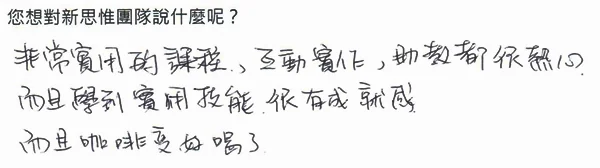 您想對新思惟團隊說什麼呢？
非常實用的課程、互動實作，助教都很熱心
而且學到實用技能 很有成就感
而且咖啡變好喝了